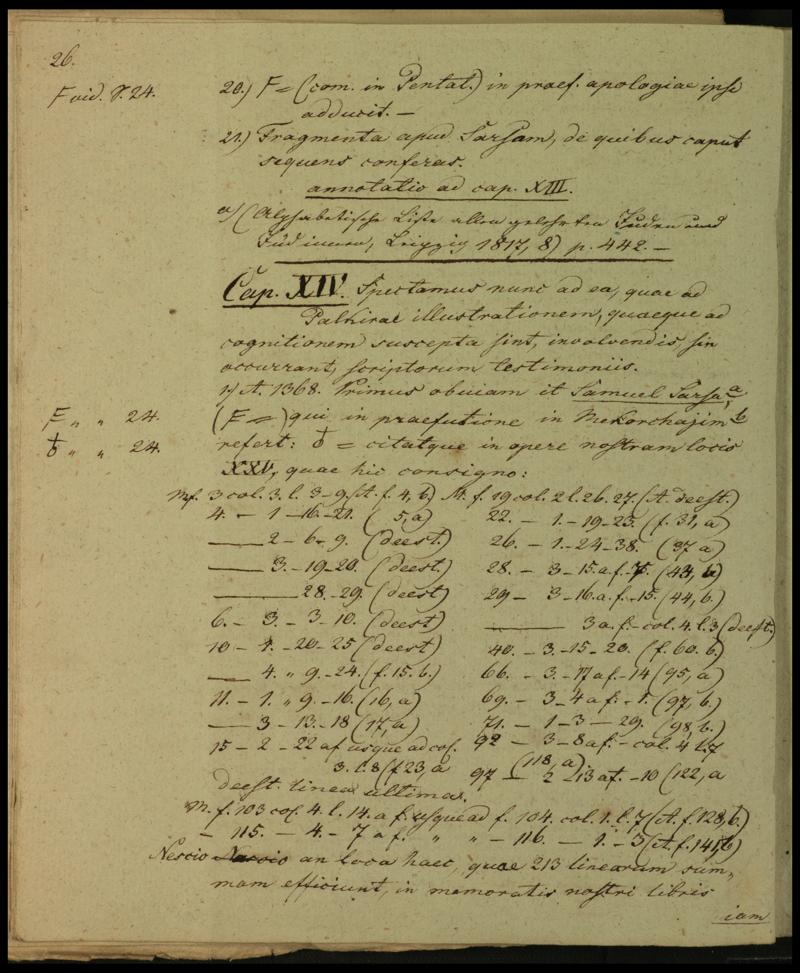 26.
F vid. S. 24.
20.) F = (com. in Pental.) in praef. apologiae ipse
adducit. —
21.) Fragmenta apud Sarsam, de quibus caput
sequens conferas.
annotatio ad cap. XIII.
a) (Alphabetische Liste aller gelehrten Juden und
Jüdinnen, Leipzig 1817, 8) p. 442. —
Cap. XIV. Spectamus nunc ad ea, quae ad
Palkirae illustrationem, quaeque ad
cognitionem suscepta sint, involvendis sin
occurrant, scriptorum testimoniis.
1) A. 1368. Primus obviam it Samuel Sarsa a
F „ „ 24.
(F =) qui in praefatione in Mekorchajim b
♁ „ „ 24.
refert: ♁ = citatque in opere nostram locis
XXV, quae hic consigno:
Mf. 3 col. 3. l. 3-9. (A. f. 4, b)
4. — 1 — 16-21. ( 5, a)
—— 2 - 6 - 9. (deest.)
—— 3. - 19-20. (deest.)
—— 28-29. (deest)
6. — 3. - 3-10. (deest)
10 — 4. - 20-25 (deest)
—— 4. „ 9.-24. (f. 15. b.)
11. — 1. „ 9.-16. (16, a)
—— 3 - 13.-18 (17, a)
15 — 2 - 22 a f usque ad col.
3. l. 8 (f 23, a
deest. linea ultima.
M. f. 19 col. 2 l. 26. 27. (A. deest.)
22. — 1. - 19-23. (f. 31, a)
26. — 1. - 24-38. (37 a)
28. — 3 - 15. a f. - 7. (43, b)
29 — 3 - 16. a. f. - 15. (44, b.)
—— 3 a. f. - col. 4. l. 3 (deest.)
40. — 3. - 15-20. (f. 60. b.)
66. — 3. - 17 a f. - 14 (95, a)
69. — 3 - 4 a f. - 1. (97, b.)
71. — 1 - 3 — 29. (98, b.)
92 — 3 - 8 a f. - col. 4 l. 7
(118, a)
97 — 2 - 13 a f. - 10 (122, a
M. f. 103 col. 4. l. 14. a f. usque ad f. 104. col. 1. l. 7 (A. f. 128, b.)
— 115. — 4. - 7 a f. „ „ - 116. — 1. - 3 (A. f. 141, b)
Nescio an loca haec, quae 213 linearum sum„
mam efficiunt, in memoratis nostri libris
iam